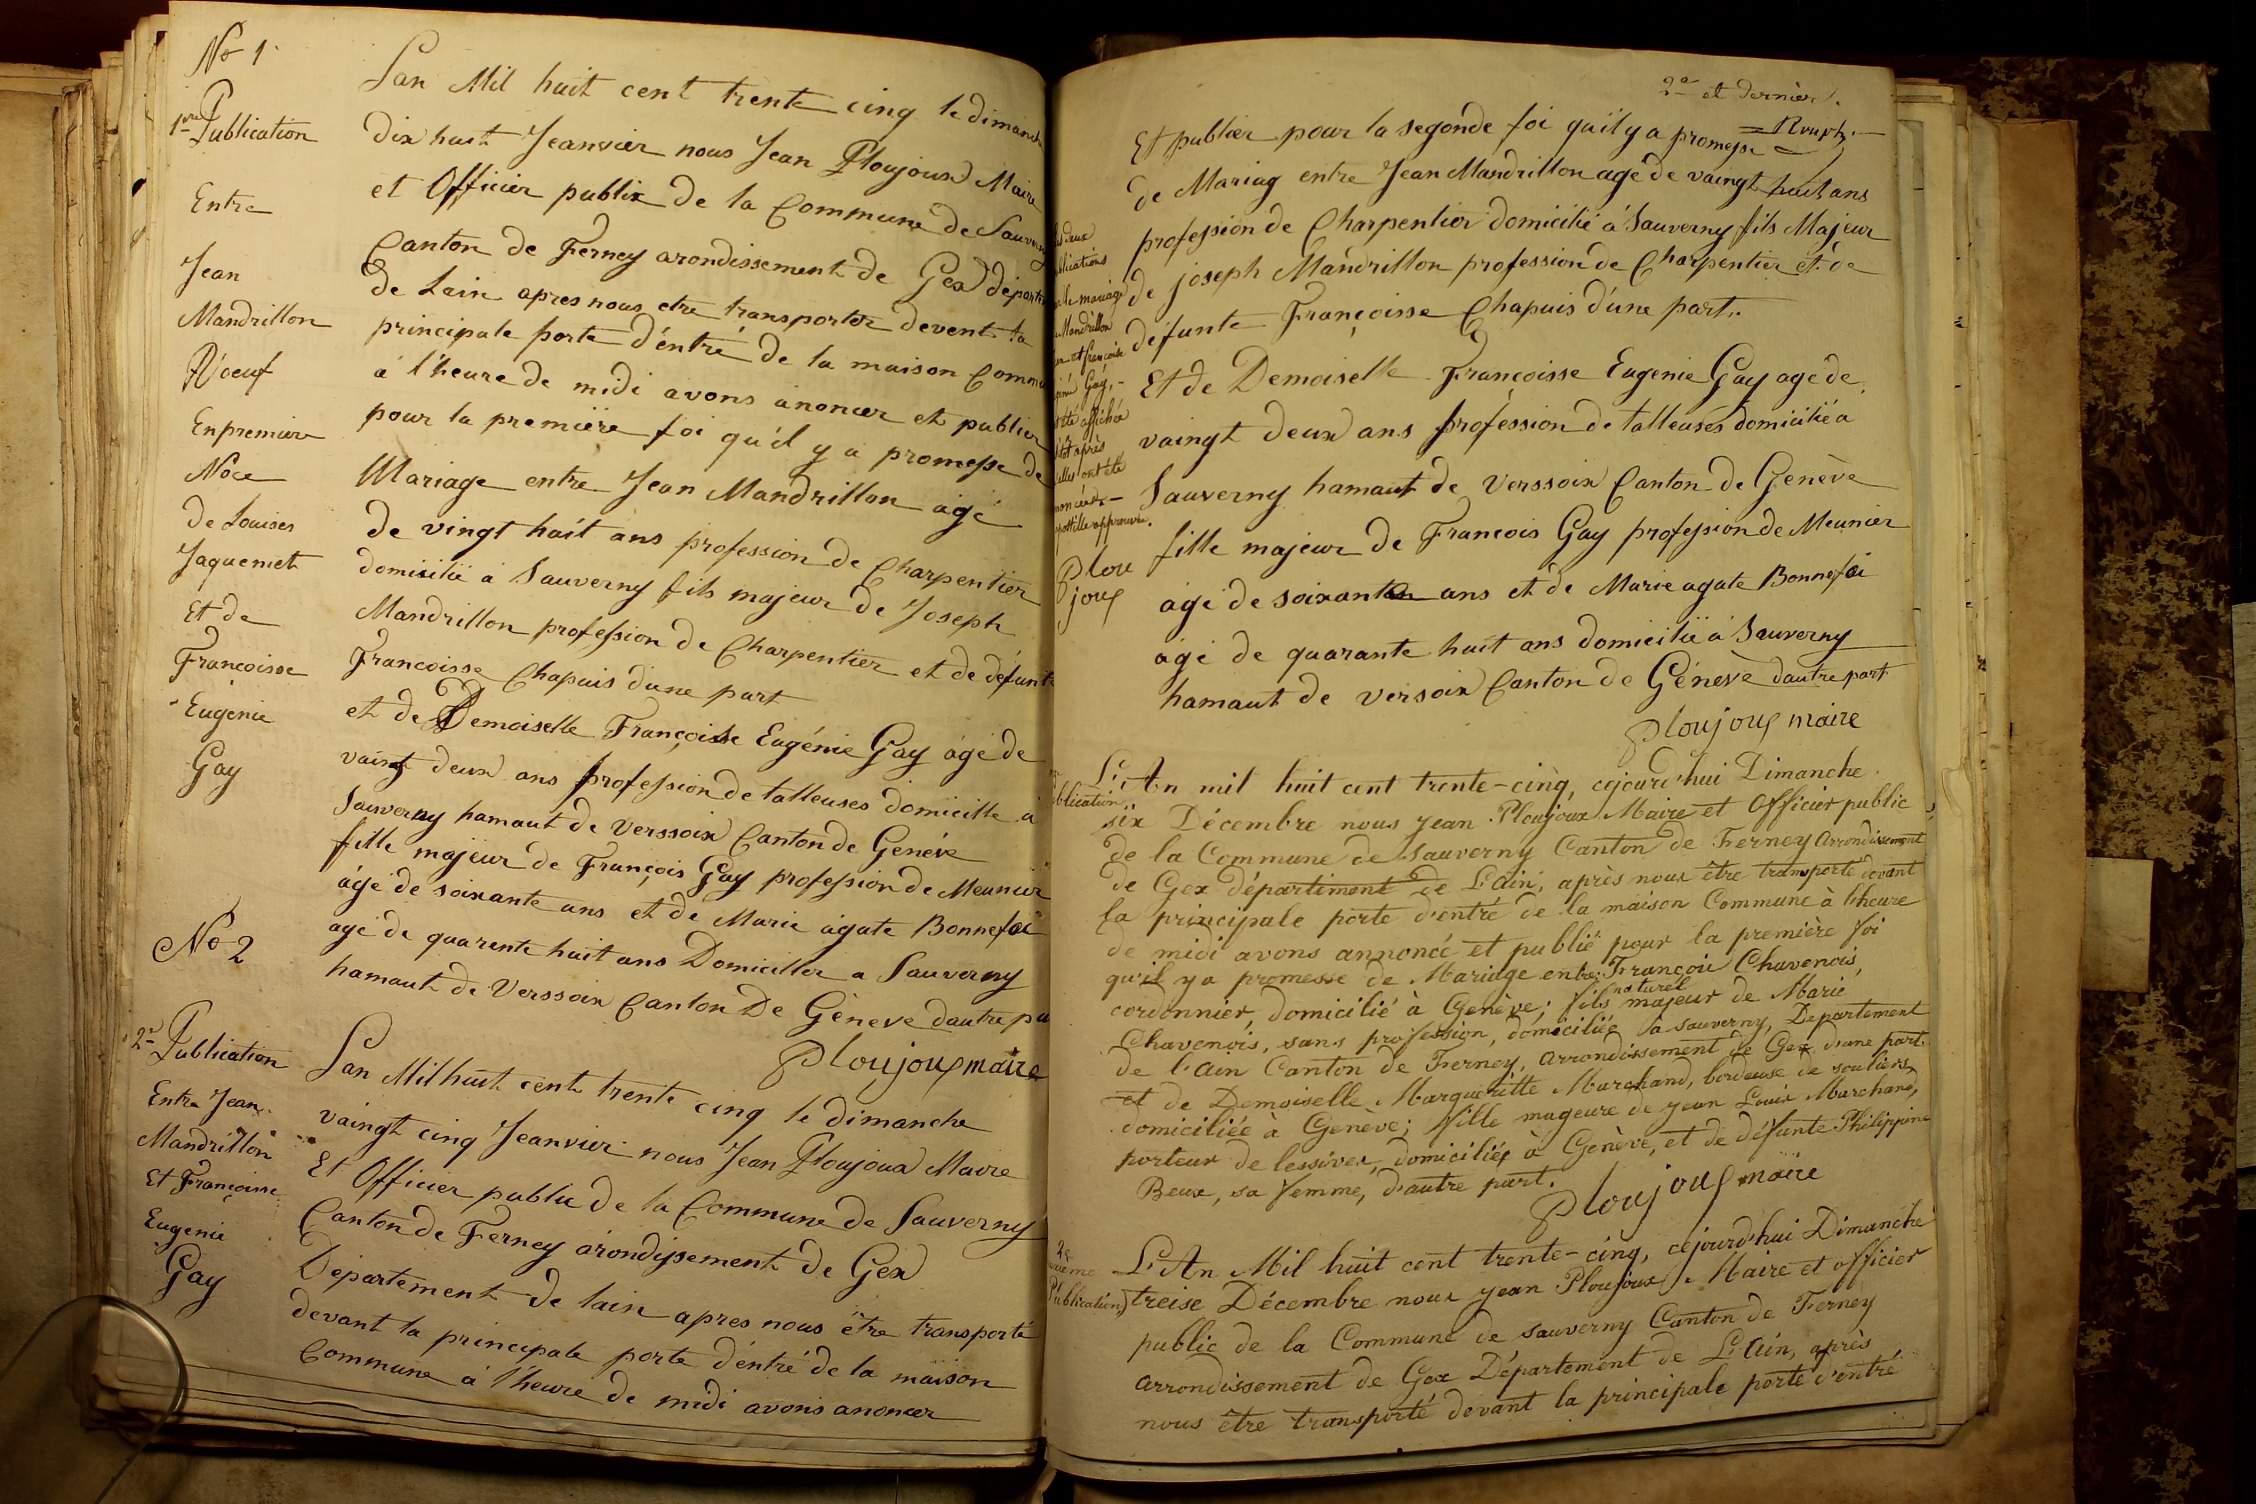 No 1
1re Publication
Entre
Jean
Mandrillon
Noeuf
En premiere
Noce
de Louises
Jaquemet
Et de
Francoisse
Eugénie
Gay
Lan Mil huit cent trente cinq le dimanche
dix huit Jeanvier nous Jean Ploujoux Maire
et Officier publix de la Commune de Sauverny
Canton de Ferney arondissement de Gex départ
de Lain apres nous etre transporter devent la
principale porte d'éntré de la maison Commu
a l'heure de midi avons anoncer et publier
pour la premiere foi qu'il y a promesse de
Mariage entre Jean Mandrillon agé
de vingt huit ans profession de Charpentier
domicilié a Sauverny fils majeur de Joseph
Mandrillon profession de Charpentier et de défunte
Francoisse Chapuis d'une part
et de Demoiselle Françoisse Eugénie Gay agé de
vaingt deux ans profession de talleuses domicille a
Sauverny hamaut de Verssoix Canton de Genéve
fille majeur de François Gay profession de Meunier
agé de soixante ans et de Marie agate Bonnefoi
agé de quarente huit ans Domicilier a Sauverny
hamaut de Verssoix Canton De Géneve dautre pa
Ploujoux maire
No 2
2e Publication
Entre Jean
Mandrillon
Et Françoisse
Eugenie
Gay
Lan Mil huit cent trente cinq le dimanche
vaingt cinq Jeanvier nous Jean Ploujoux Maire
Et Officier public de la Commune de Sauverny
Canton de Ferney arondissement de Gex
Département de lain apres nous étre transporté
devant la principale porte d'éntré de la maison
Commune a l'heure de midi avons anoncer
2e et dernier.
Et publier pour la segonde foi qu'il y a promesse
de Mariag entre Jean Mandrillon agé de vaingt huit ans
profession de Charpentier domicilié a Sauverny fils Majeur
de joseph Mandrillon profession de Charpentier et de
défunte Françoisse Chapuis d'une part.
Et de Demoiselle Francoisse Eugenie Gay agé de
vaingt deux ans profession de talleuses domicilié a
Sauverny hamaut de Verssoix Canton de Genève
fille majeur de Francois Gay profession de Meunier
agé de soixante ans et de Marie agate Bonnefoi
agé de quarante huit ans domicilié a Sauverny
hamaut de versoix Canton de Génevè dautre part
Ploujoux maire
deux
blications
le mariage
Mandrillon
et françoise
Gay,
été affichée
tôt après
elles ont été
noncées
apostille approuvée.
Plou
joux
blication
L'An mil huit cent trente-cinq, cejourd'hui Dimanche
six Décembre nous jean Ploujoux Maire et Officier public
de la Commune de Sauverny Canton de Ferney Arrondissement
de Gex département de L'ain, après nous être transporté devant
la principale porte d'entré de la maison Commune à l'heure
de midi avons annoncé et publié pour la première foi
qu'il y a promesse de Mariage entre François Chavenois,
cordonnier, domicilié à Genève; fils naturel majeur de Marie
Chavenois, sans profession, domiciliée à sauverny, Departement
de l'Ain Canton de Ferney, Arrondissement de Gex d'une part.
et de Demoiselle Margueritte Marchand, bordeuse de souliers,
domiciliée a Genève; fille mageure de jean Louis Marchand,
porteur de lessives, domiciliés à Genève, et de défunte Philippine
Beux, sa femme, d'autre part.
Ploujoux maire
2e
Publication
L'An Mil huit cent trente-cinq, cejourd'hui Dimanche
treise Décembre nous jean Ploujoux Maire et officier
public de la Commune de sauverny Canton de Ferney
Arrondissement de Gex Département de L'Ain, après
nous être transporté devant la principale porte d'entré